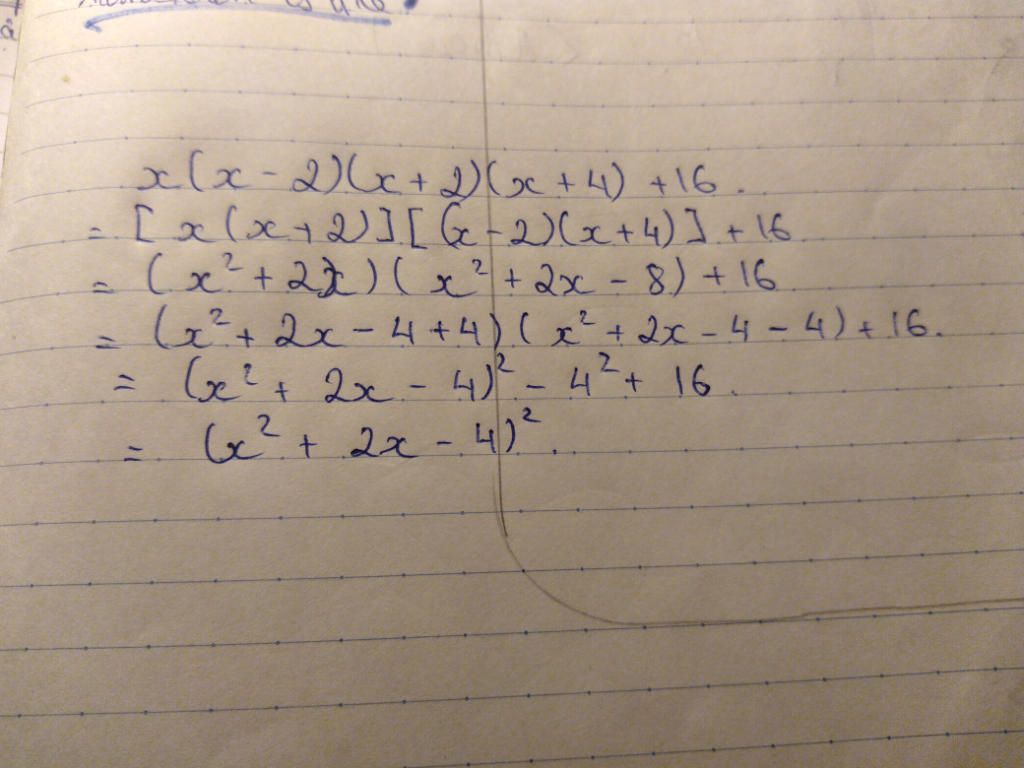 x(x-2)(x+2)(x+4)+16.
=[x(x+2)][(x-2)(x+4)]+16
=(x²+2x)(x²+2x-8)+16
=(x²+2x-4+4)(x²+2x-4-4)+16.
=(x²+2x-4)²-4²+16.
=(x²+2x-4)².